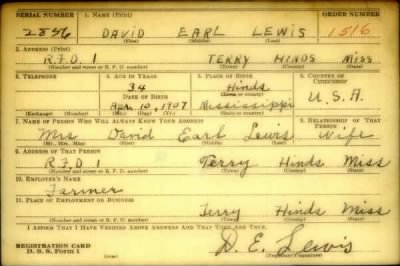 SERIAL NUMBER 1. NAME (Print) ORDER NUMBER
2856 DAVID EARL LEWIS 1516
(First) (Middle) (Last)
2. ADDRESS (Print)
R.F.D. 1 TERRY HINDS MISS
(Number and street or R. F. D. number) (Town) (County) (State)
3. TELEPHONE 4. AGE IN YEARS 5. PLACE OF BIRTH 6. COUNTRY OF CITIZENSHIP
34 Hinds
DATE OF BIRTH (Town or county)
Apr. 10, 1907 Mississippi U.S.A.
(Exchange) (Number) (Mo.) (Day) (Yr.) (State or country)
7. NAME OF PERSON WHO WILL ALWAYS KNOW YOUR ADDRESS 8. RELATIONSHIP OF THAT PERSON
Mrs David Earl Lewis Wife
(Mr., Mrs., Miss) (First) (Middle) (Last)
9. ADDRESS OF THAT PERSON
R.F.D 1 Terry Hinds Miss
(Number and street or R. F. D. number) (Town) (County) (State)
10. EMPLOYER'S NAME
Farmer
11. PLACE OF EMPLOYMENT OR BUSINESS
Terry Hinds Miss
(Number and street or R. F. D. number) (Town) (County) (State)
I AFFIRM THAT I HAVE VERIFIED ABOVE ANSWERS AND THAT THEY ARE TRUE.
REGISTRATION CARD D. E. Lewis
D. S. S. Form 1 (Registrant's signature)